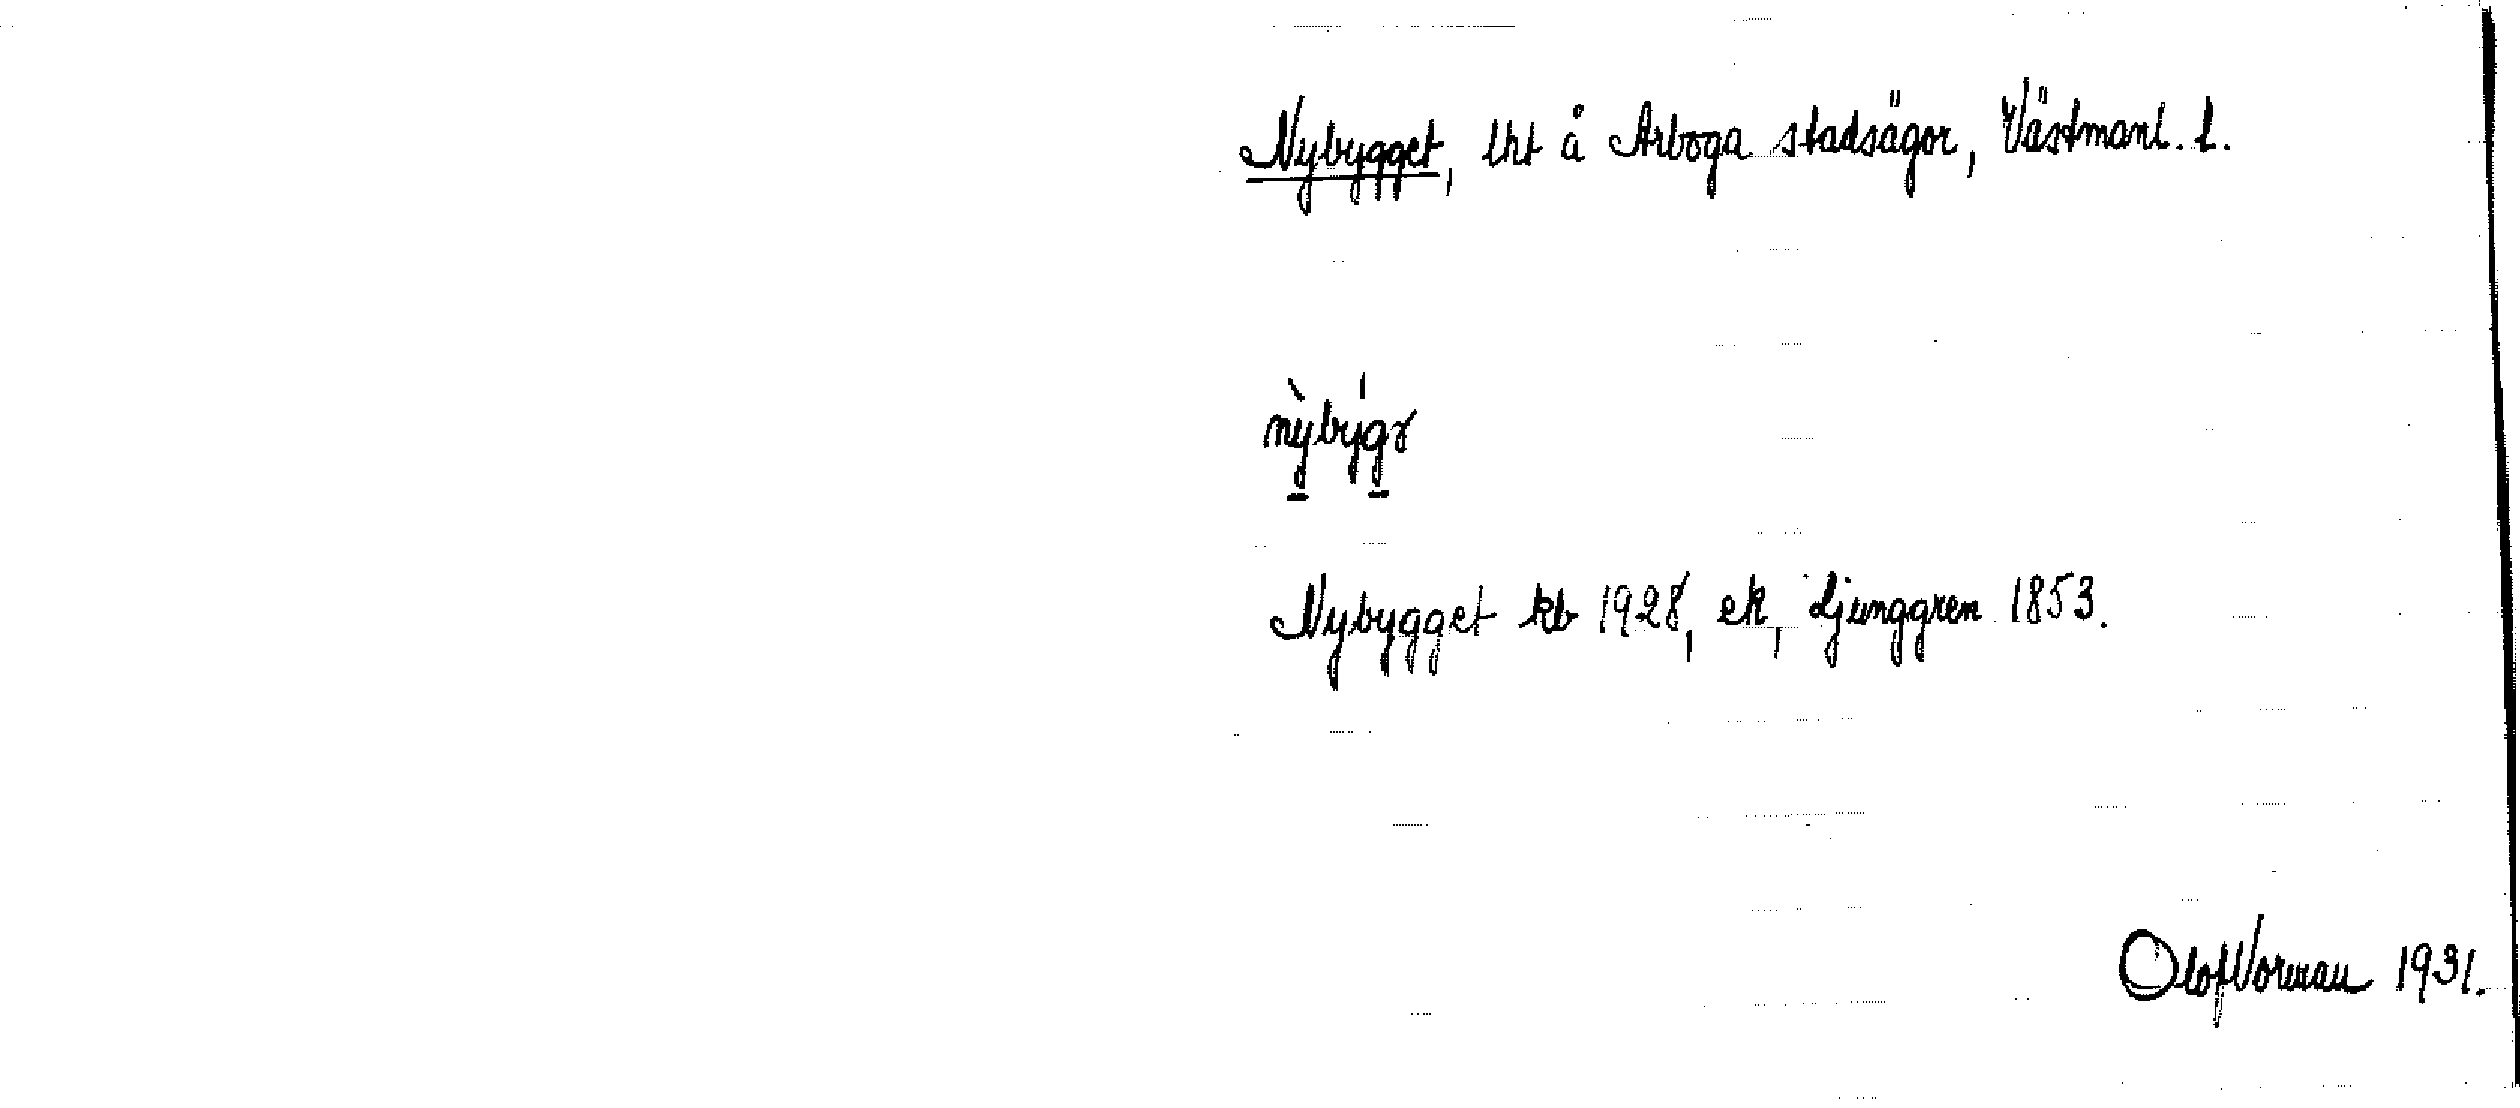 Nybygget, lht å Arboga stadsägor, Västmanl. l.
Nybygget kb 1928, ek, Ljunggren 1853.
Olof Vorman 1931.